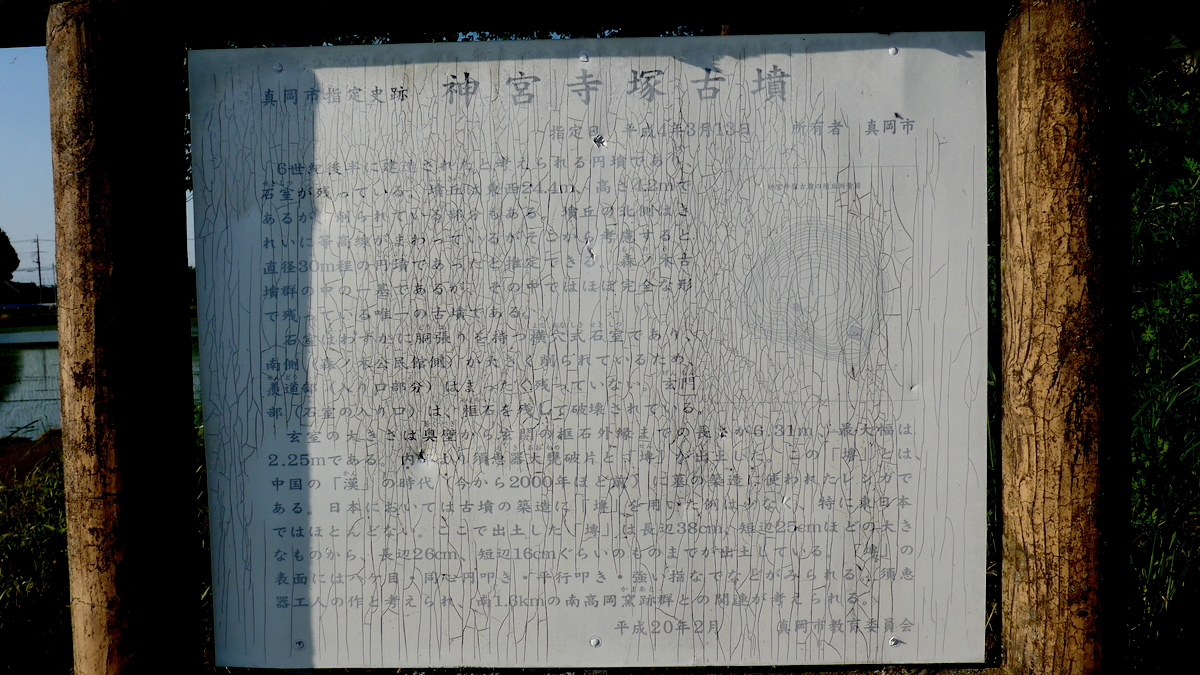 真岡市指定史跡 神宮寺塚古墳
指定日 平成4年3月13日 所有者 真岡市
6世紀後半に建造されたと考えられる円墳であり、
石室が残っている。墳丘は東西24.4m、高さ4.2mで
あるが、削られている部分もある。墳丘の北側はき
れいに等高線がまわっているがそこから考慮すると
直径30m程の円墳であったと推定できる。森ノ木古
墳群の中の一基であるが、その中ではほぼ完全な形
で残っている唯一の古墳である。
石室はわずかに胴張りを持つ横穴式石室であり、
南側(森ノ木公民館側)が大きく削られているため、
羨道部(入り口部分)はまったく残っていない。玄門
部(石室の入り口)は、框石を残して破壊されている。
玄室の大きさは奥壁から玄関の框石外縁までの長さが6.31m、最大幅は
2.25mである。内部より須恵器大甕破片と「塼」が出土した。この「塼」とは、
中国の「漢」の時代(今から2000年ほど前)に墓の築造に使われたレンガで
ある。日本においては古墳の築造に「塼」を用いた例は少なく、特に東日本
ではほとんどない。ここで出土した「塼」は長辺38cm、短辺25cmほどの大き
なものから、長辺26cm、短辺16cmぐらいのものまでが出土している。「塼」の
表面にはハケ目・同心円叩き・平行叩き・強い指なでなどがみられる。須恵
器工人の作と考えられ、南1.6kmの南高岡窯跡群との関連が考えられる。
かまあと
平成20年2月 真岡市教育委員会